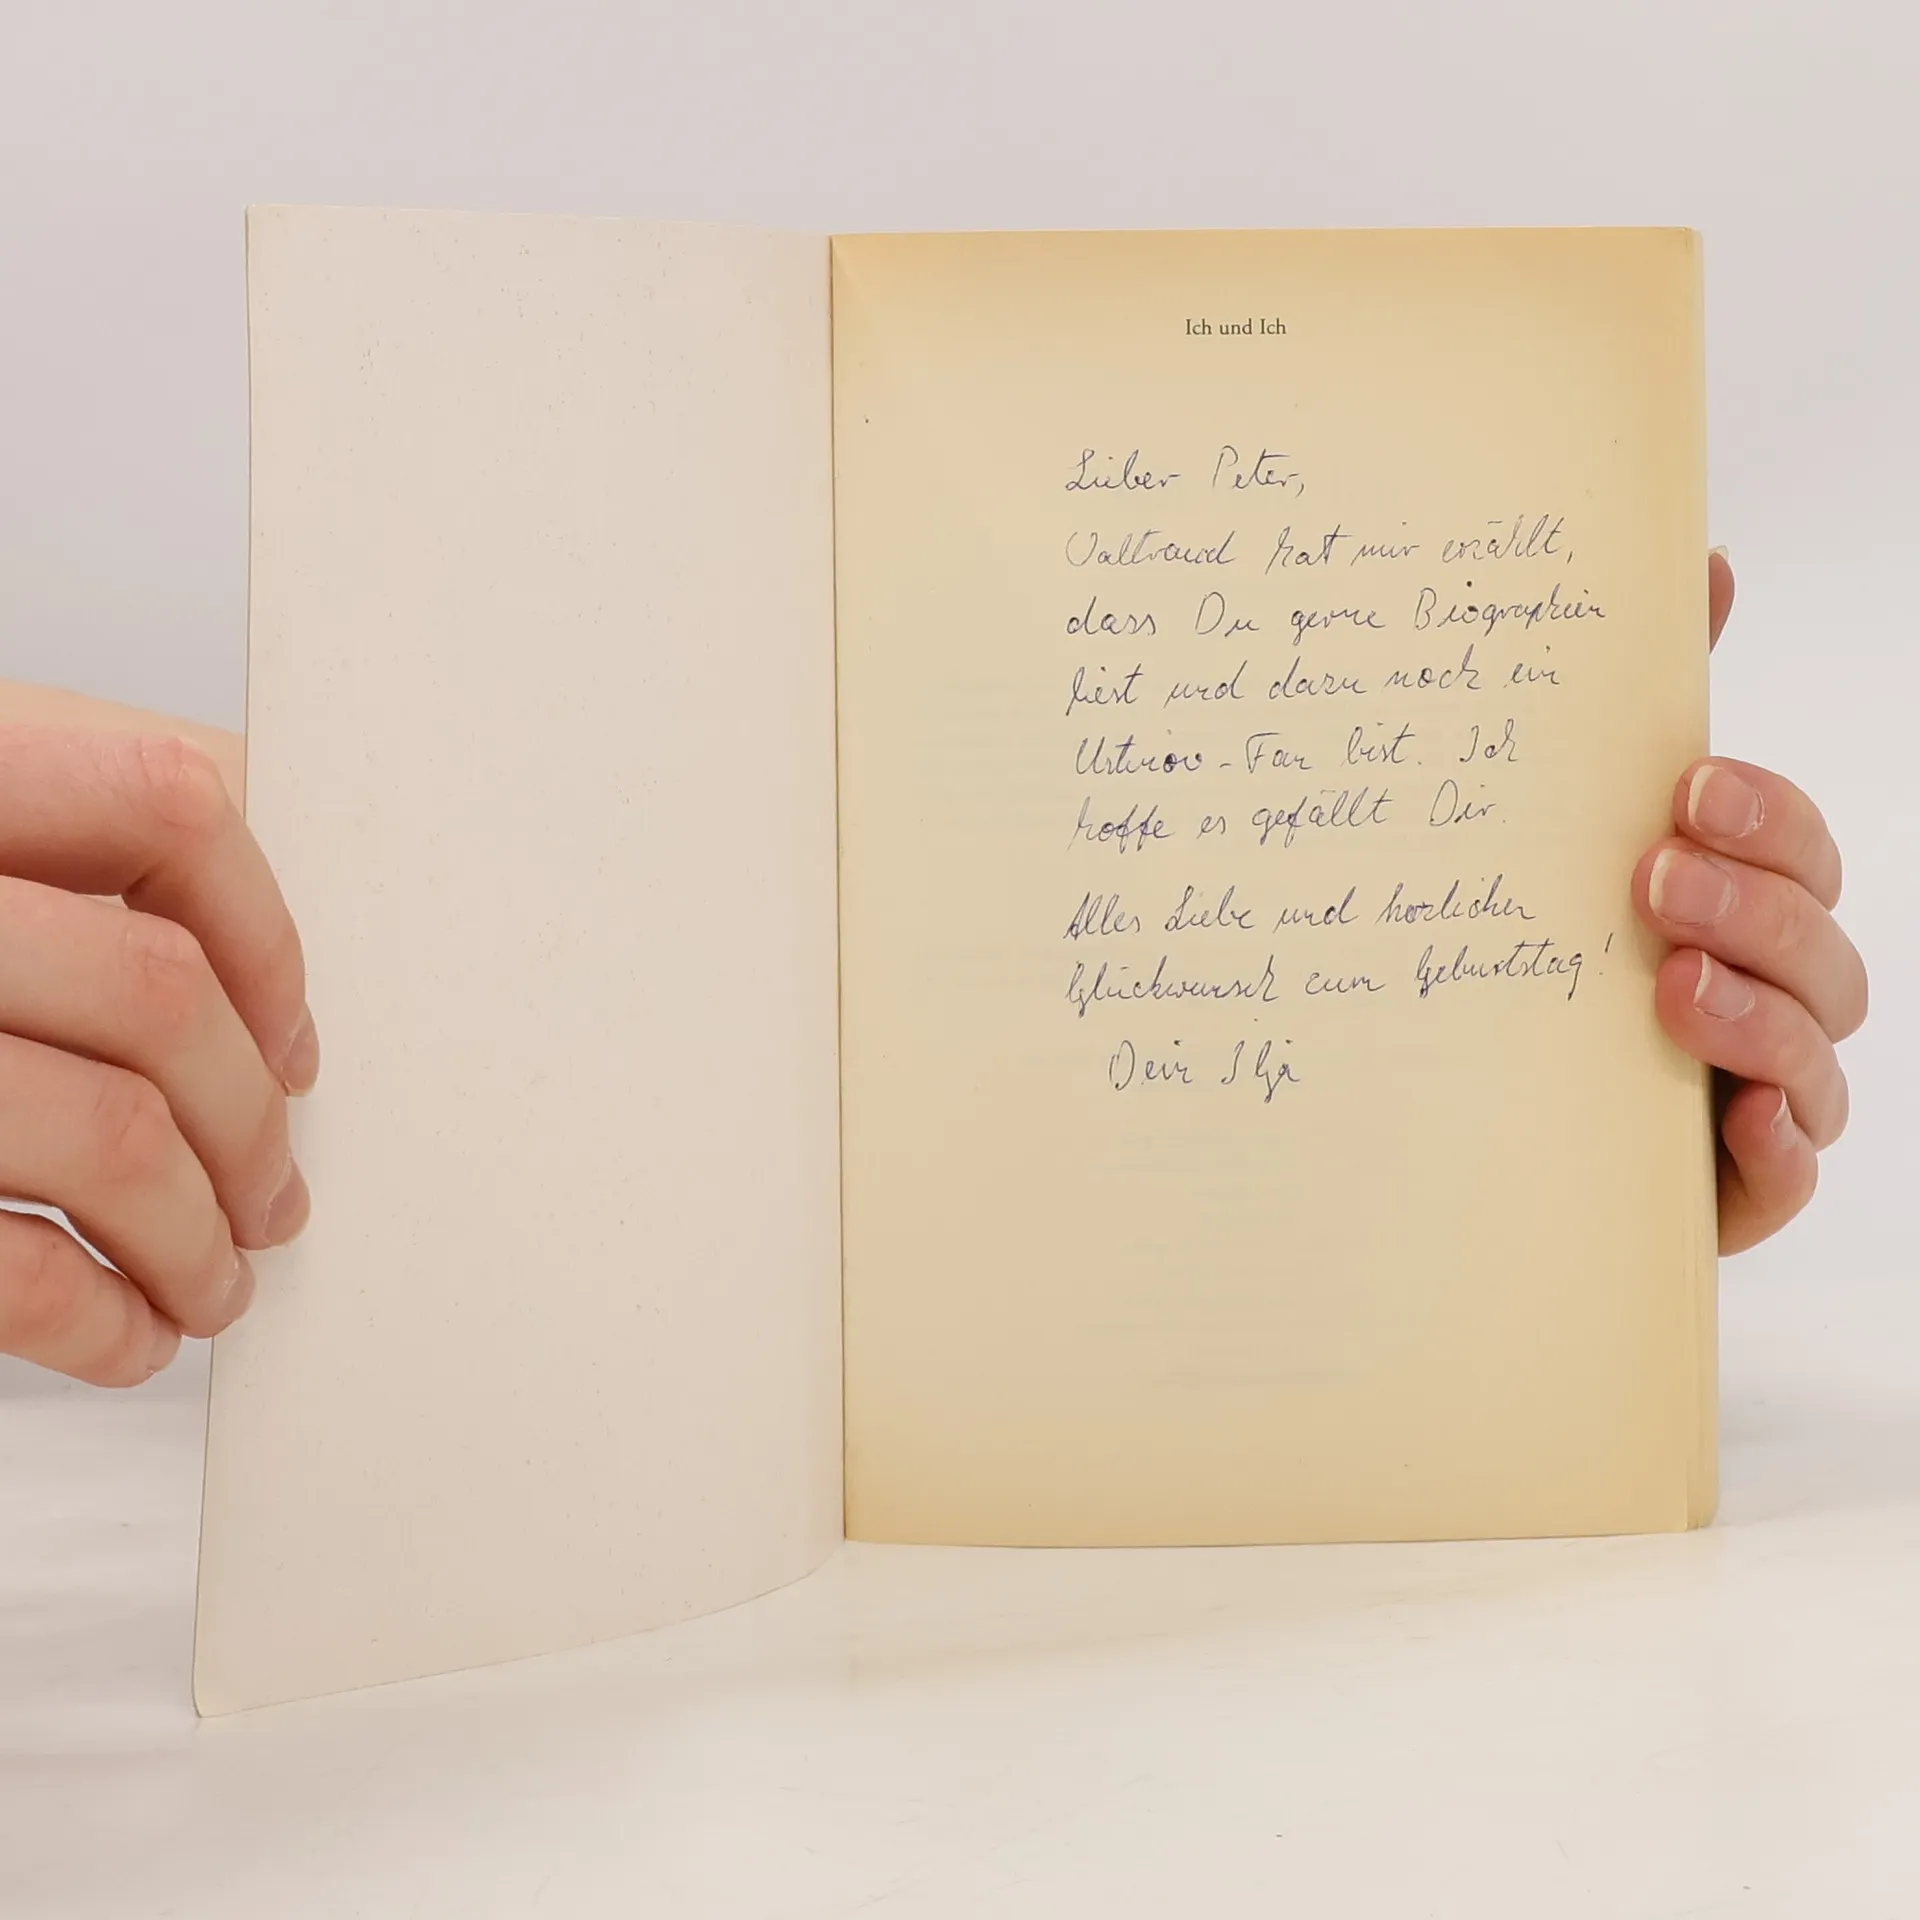 Ich und Ich
Lieber Peter,
Valtraud hat mir erzählt,
dass Du gerne Biographien
liest und dazu noch ein
Ustinov-Fan bist. Ich
hoffe es gefällt Dir.
Alles Liebe und herzlichen
Glückwunsch zum Geburtstag!
Dein Ilja